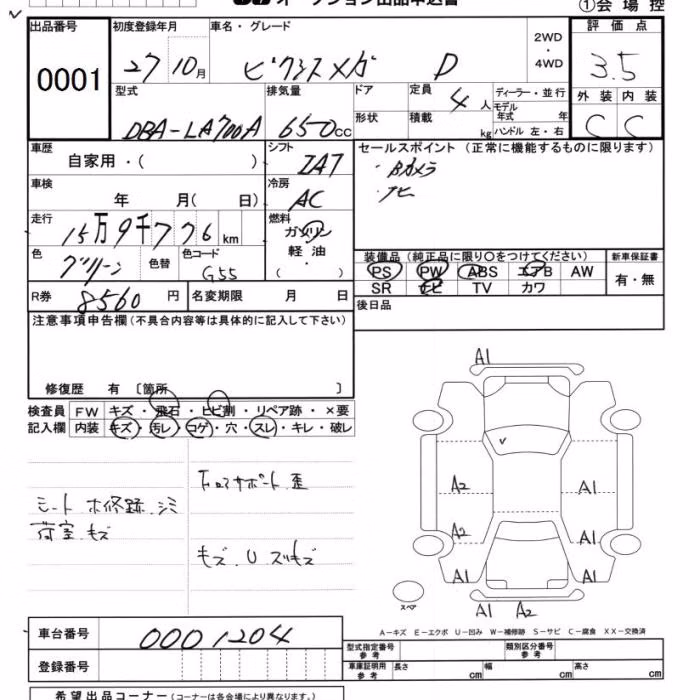 オークション出品申込書
①会場控
出品番号 初度登録年月 車名・グレード 2WD・4WD 評価点
0001 27 10月 ピクシスメガ D 3.5
型式 排気量 ドア 定員 4人 ディーラー・並行 外装 内装
DBA-LA700A 650cc 形状 積載 kg モデル年式 年 ハンドル 左・右 C C
車歴 自家用・( ) シフト IAT セールスポイント (正常に機能するものに限ります)
Bカメラ
ナビ
車検 年 月( 日) 冷房 AC
走行 15万9千776km 燃料 ガソリン 軽油 ( ・ )
装備品 (純正品に限り○をつけてください) 新車保証書
色 グリーン 色替 色コード G55
PS PW ABS エアB AW 有・無
SR ナビ TV カワ
R券 8560円 名変期限 月 日 後日品
注意事項申告欄(不具合内容等は具体的に記入して下さい)
修復歴 有 〔箇所 〕
検査員 FW キズ・飛石・ヒビ割・リペア跡・×要
記入欄 内装 キズ・汚レ・コゲ・穴・スレ・キレ・破レ
シート 木修跡.シミ
荷室.キズ
歪
キズ.U
A1
A2 A1
A2 A1
A1 A1
A1 A2
スペア
A-キズ E-エクボ U-凹み W-補修跡 S-サビ C-腐食 XX-交換済
車台番号 0001204
型式指定番号 参考 類別区分番号 参考
登録番号 車庫証明用 参考 長さ cm 幅 cm 高さ cm
希望出品コーナー(コーナーは各会場により異なります。)